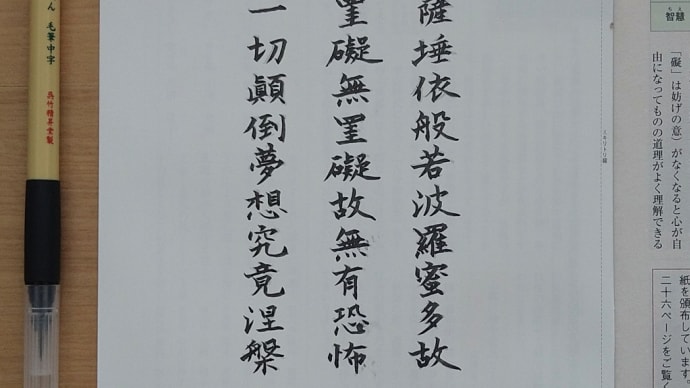 智慧
ちえ
「礙」は妨げの意）がなくなると心が自
由になってものの道理がよく理解できる
紙を頒布しています
二十六ページをご覧く
キリトリ線
薩埵依般若波羅蜜多故
罣礙無罣礙故無有恐怖
一切顚倒夢想究竟涅槃
ん 毛筆中字
呉竹精昇堂製